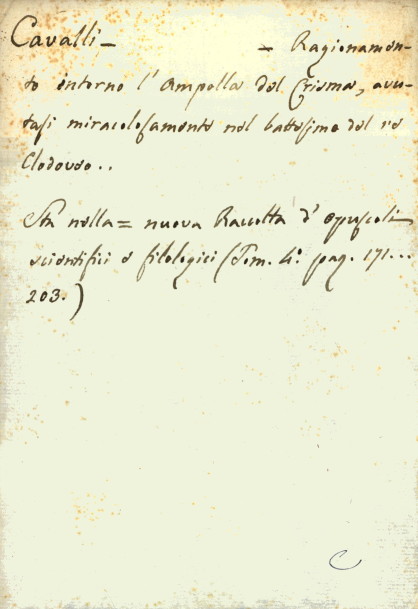 Cavalli - - Ragionamen-
to intorno l'Ampolla del Crisma, avu-
tasi miracolosamente nel battesimo del re
Clodoveo..
Stà nella = nuova Raccolta d'opuscoli
scientifici e filologici (Tom. 4.° pag. 171...
203.)
C